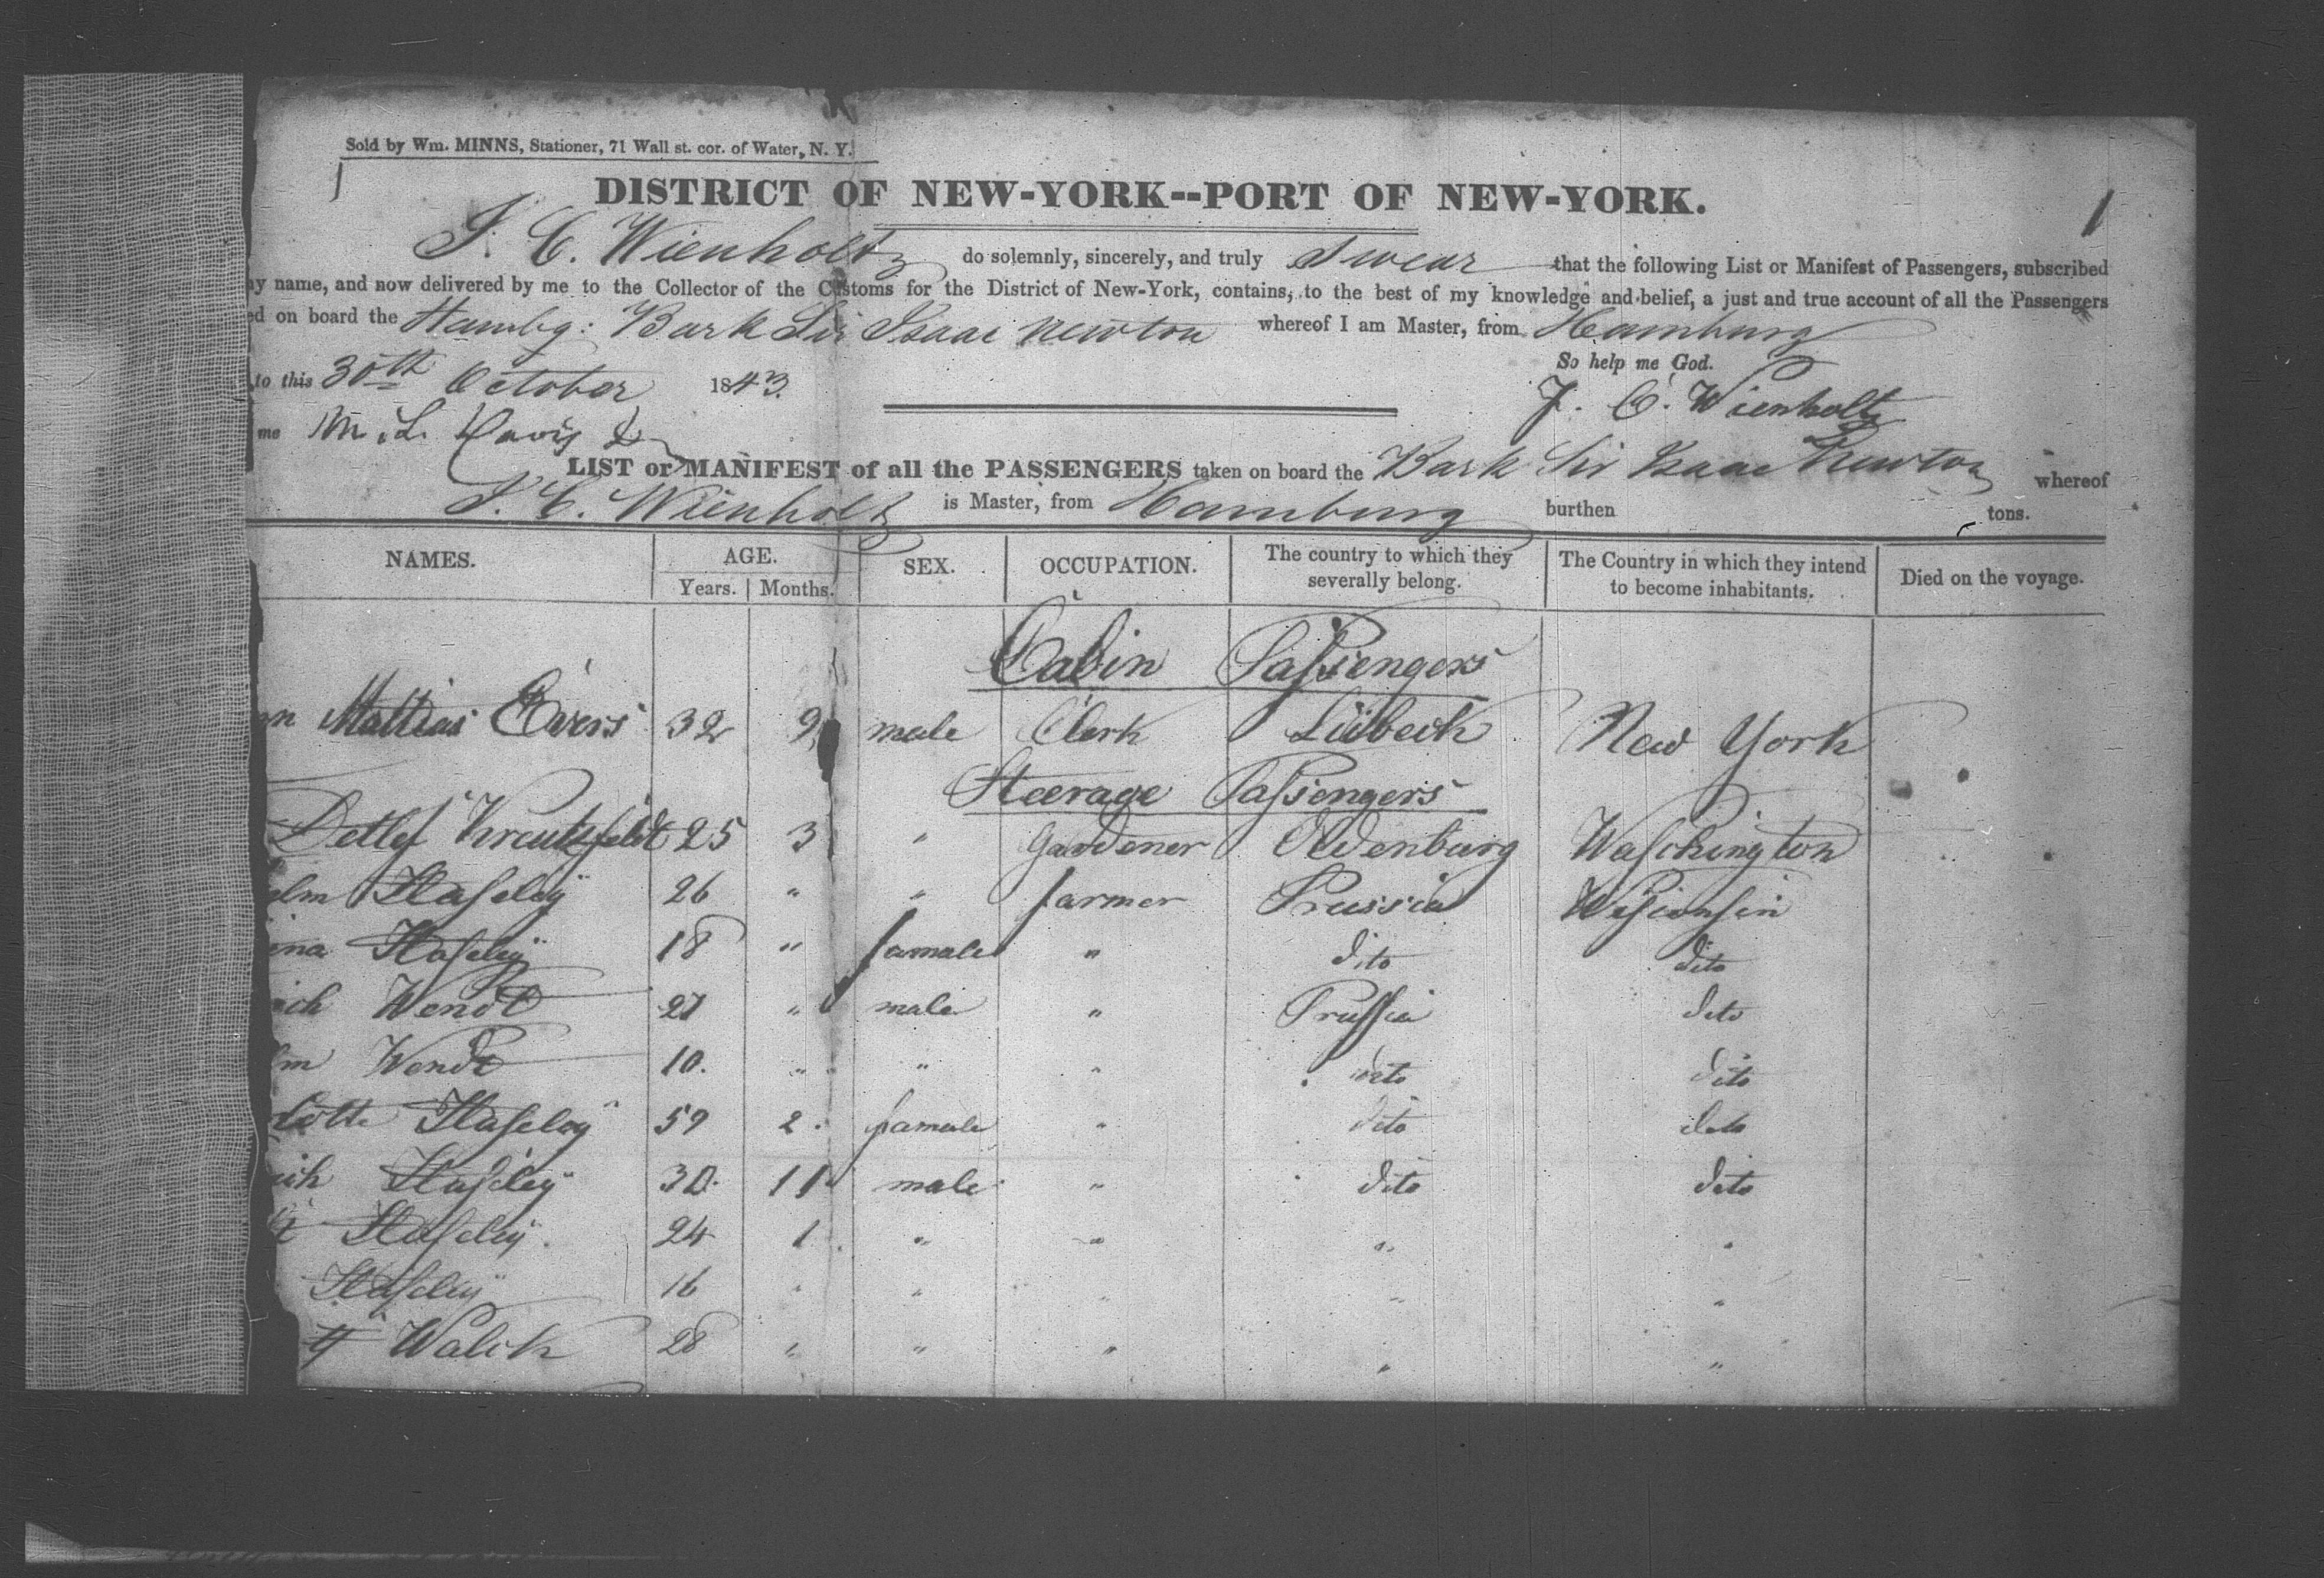 Sold by Wm. MINNS, Stationer, 71 Wall st. cor. of Water, N. Y.
DISTRICT OF NEW-YORK--PORT OF NEW-YORK.
1
J. C. Wienholtz do solemnly, sincerely, and truly swear that the following List or Manifest of Passengers, subscribed
y name, and now delivered by me to the Collector of the Customs for the District of New-York, contains, to the best of my knowledge and belief, a just and true account of all the Passengers
ed on board the Hambg: Bark Sir Isaac Newton whereof I am Master, from Hamburg
So help me God.
to this 30th October 1843.
J. C. Wienholtz
me M. L. Davis
LIST or MANIFEST of all the PASSENGERS taken on board the Bark Sir Isaac Newton whereof
J. C. Wienholtz is Master, from Hamburg burthen tons.
NAMES. AGE. Years. Months. SEX. OCCUPATION. The country to which they severally belong. The Country in which they intend to become inhabitants. Died on the voyage.
Cabin Passengers
n Mattias Evers 32 9 male Clerk Lübeck New York
Steerage Passengers
Detlef Kreutzfeldt 25 3 " Gardener Oldenburg Waschington
elm Haseley 26 " " farmer Prussia Wisconsin
ina Haseley 18 " famale " dito dito
ich Wendt 27 " male " Prussia dito
lm Wendt 10. " " " dito dito
lotte Haseley 59 2. famale " dito dito
ich Haseley 30. 11 male " dito dito
Haseley. 24 1 " " " "
Haseley 16 " " " " "
Walck 28 " " " " "